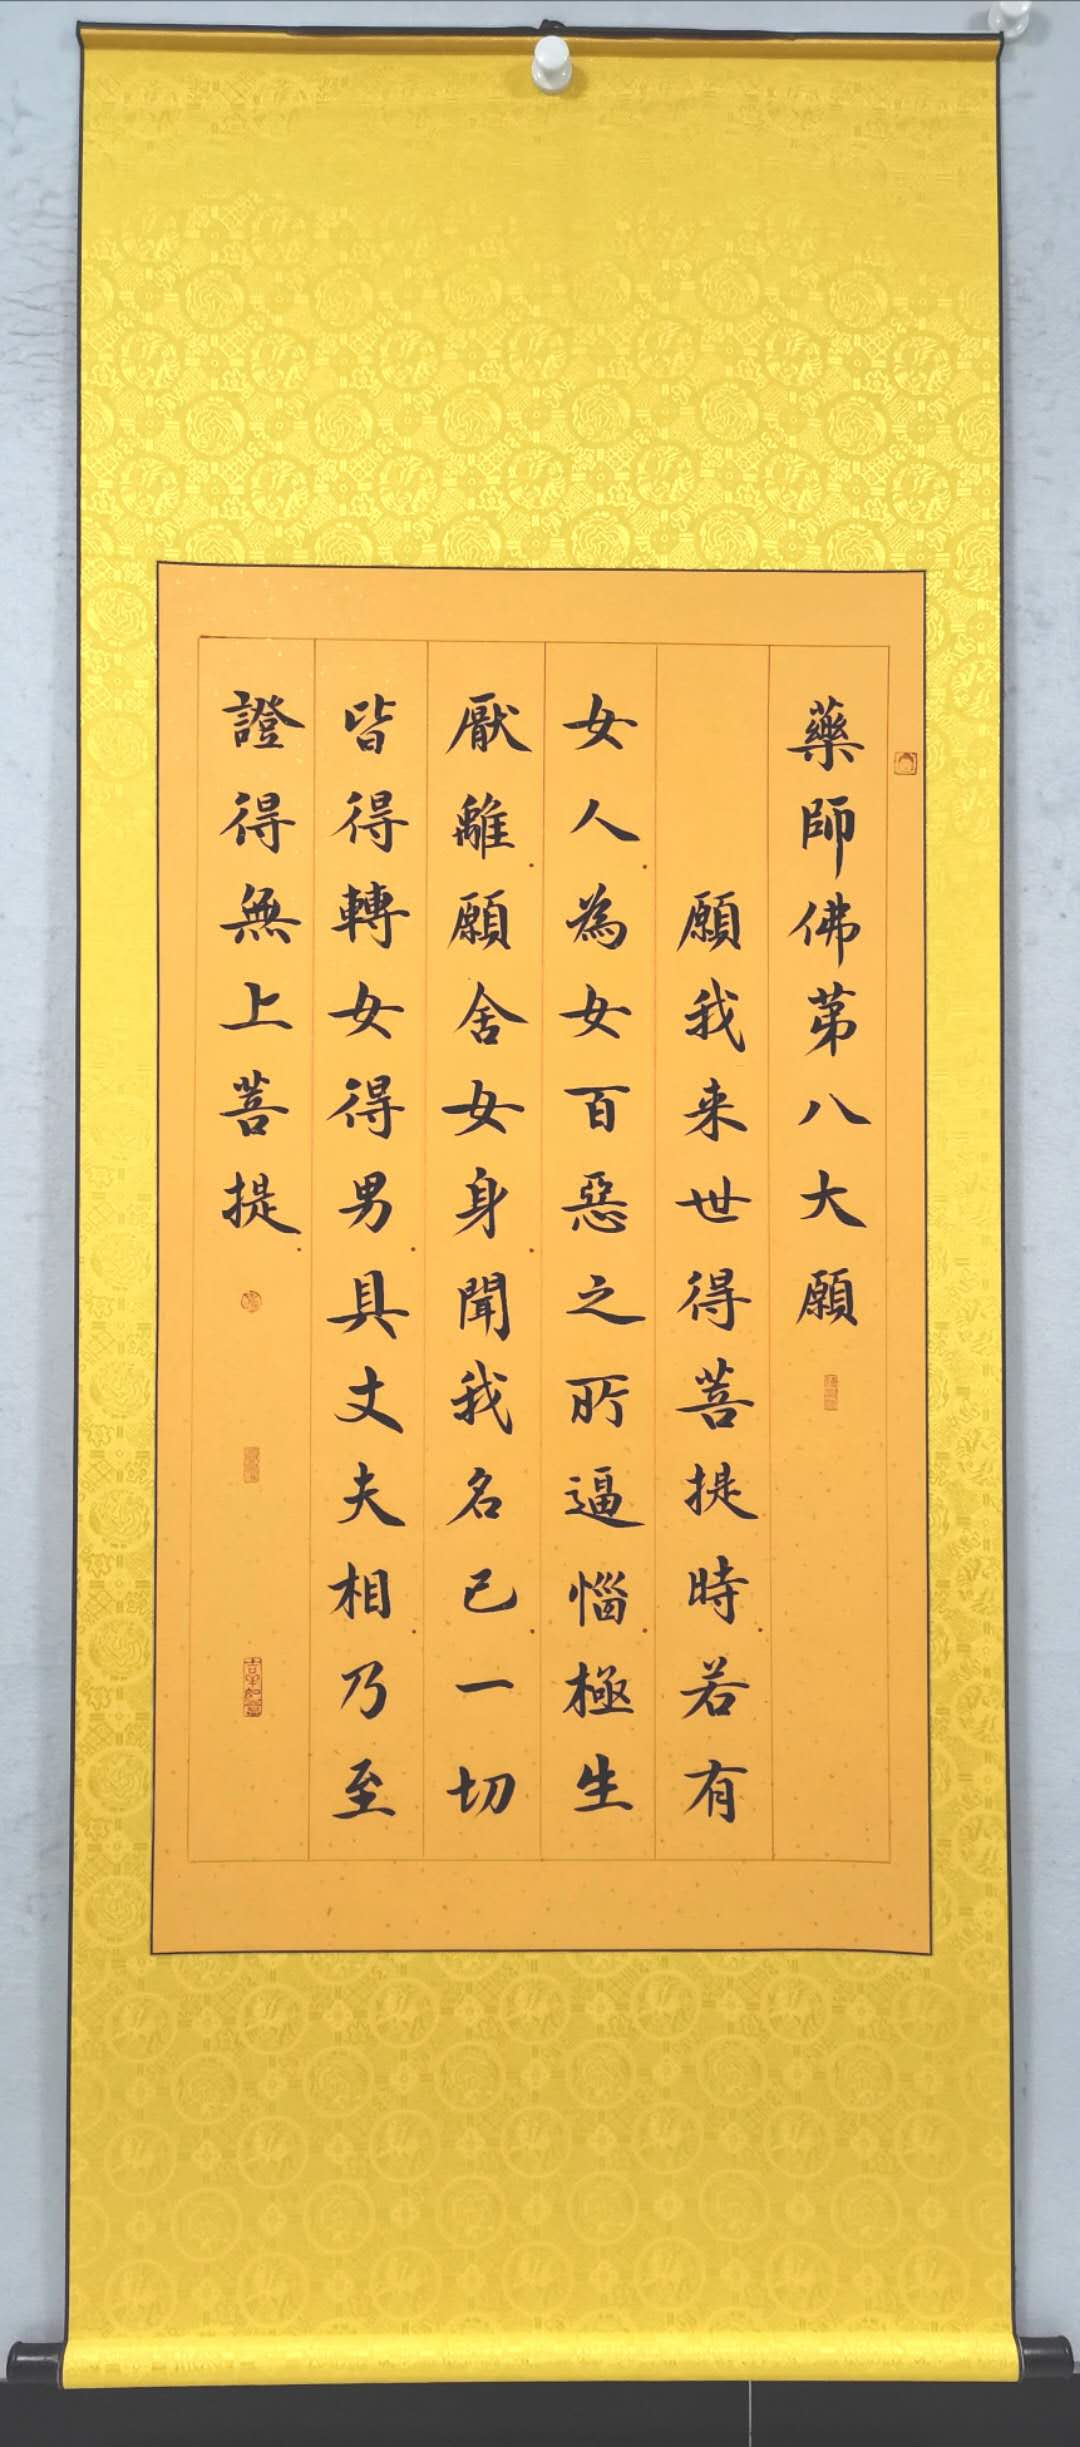 藥師佛苐八大願
願我来世得菩提時若有
女人為女百惡之所逼惱極生
厭離願舍女身聞我名已一切
皆得轉女得男具丈夫相乃至
證得無上菩提
吉祥如意